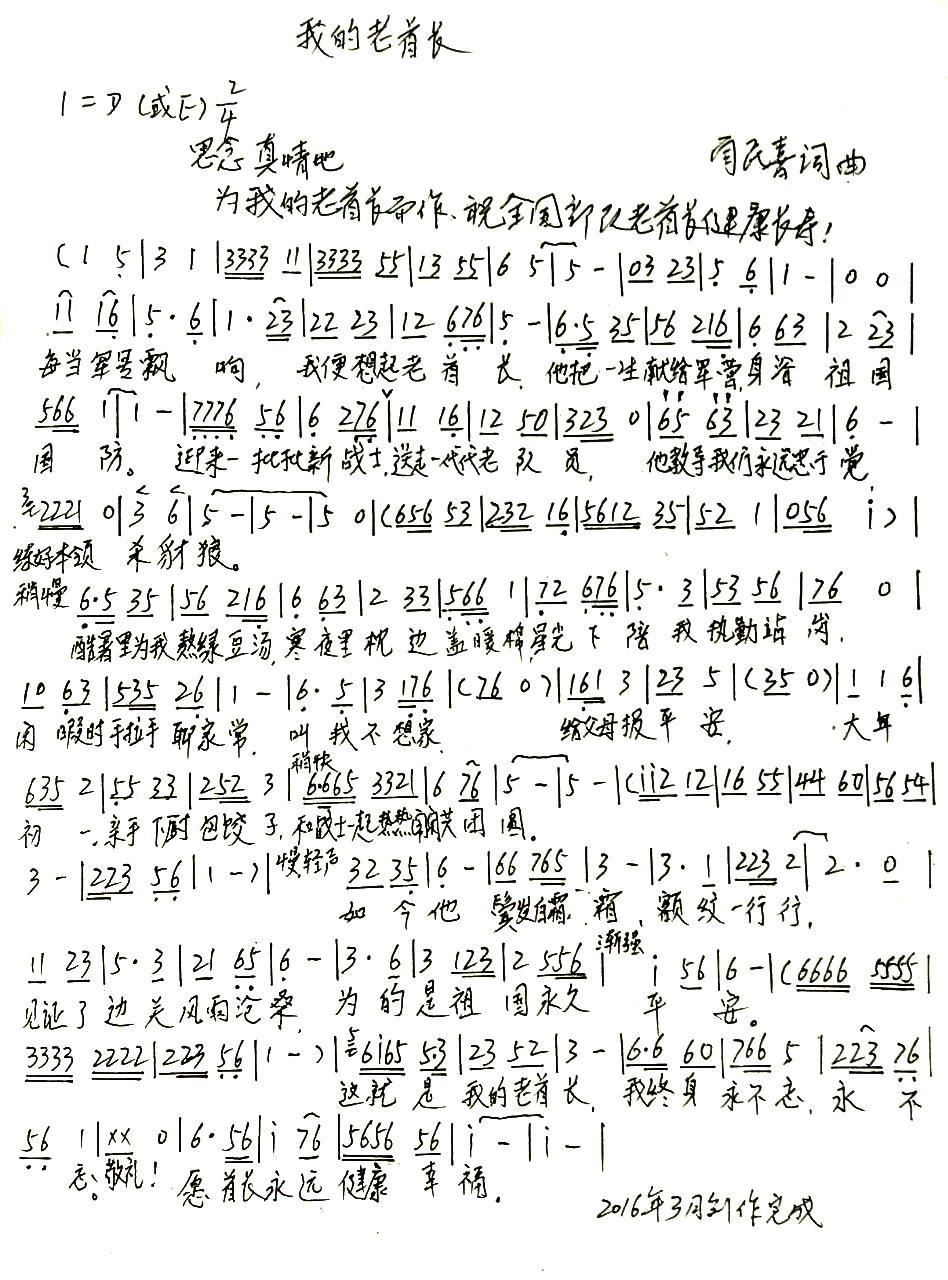 我的老首长
1=D (或E) 2/4
思念 真情地
民喜词曲
为我的老首长而作、祝全国部队老首长健康长寿!
(1 5|3 1|3333 11|3333 55|13 55|6 5|5 -|03 23|5 6|1 -|0 0|
11 16|5· 6|1· 23|22 23|12 676|5 -|6·5 35|56 216|6 63|2 23|
每当军号飘响, 我便想起老首长, 他把一生献给军营身容祖国
566 1|1 -|7776 56|6 276|11 16|12 50|323 0|65 63|23 21|6 -|
国防。 迎来一批批新战士,送走一代代老队员, 他教导我们永远忠于党
2221 0|3 6|5 -|5 -|5 0|(656 53|232 16|5612 35|52 1|056 i)|
练好本领 杀豺狼。
稍慢 6·5 35|56 216|6 63|2 33|566 1|72 676|5· 3|53 56|76 0|
酷暑里为我熬绿豆汤,寒夜里枕边盖暖棉,星光下陪我执勤站岗,
10 63|535 26|1 -|6· 5|3 176|(76 0)|161 3|23 5|(35 0)|1 1 6|
闲暇时手拉手聊家常, 叫我不想家, 给父母报平安, 大年
635 2|55 33|252 3|稍快 6·665 3321|6 76|5 -|5 -|(ii2 12|16 55|44 60|56 54|
初一,亲手下厨包饺子,和战士一起热热闹闹共团圆。
3 -|223 56|1 -)|慢轻声 32 35|6 -|66 765|3 -|3· 1|223 2|2· 0|
如今他 鬓发白霜 霜, 额纹一行行,
11 23|5· 3|21 65|6 -|3· 6|3 123|2 556|渐强 i 56|6 -|(6666 5555|
见证了边关风雨沧桑, 为的是祖国永久平安。
3333 2222|223 56|1 -)|6i65 5·3|23 52|3 -|6·6 60|766 5|223 76|
这就是我的老首长, 我终身永不忘, 永不
56 1|xx 0|6· 56|i 76|5656 56|i -|i -|
忘。敬礼! 愿首长永远健康幸福。
2016年3月创作完成